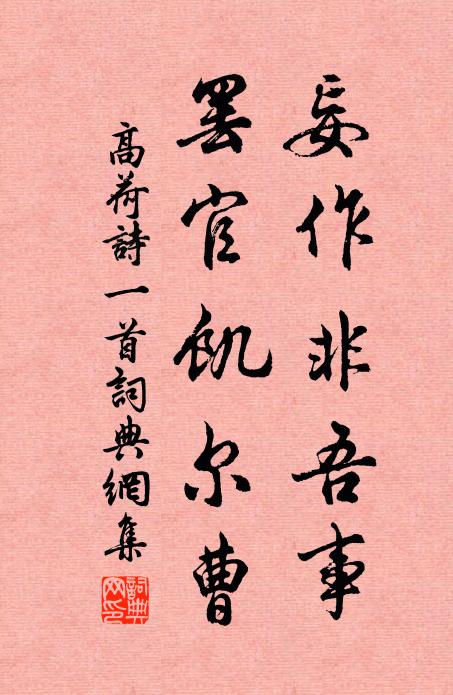 妄作非吾事
罢官飢尔曹
高荷詩一首詞典網集
詞典網印